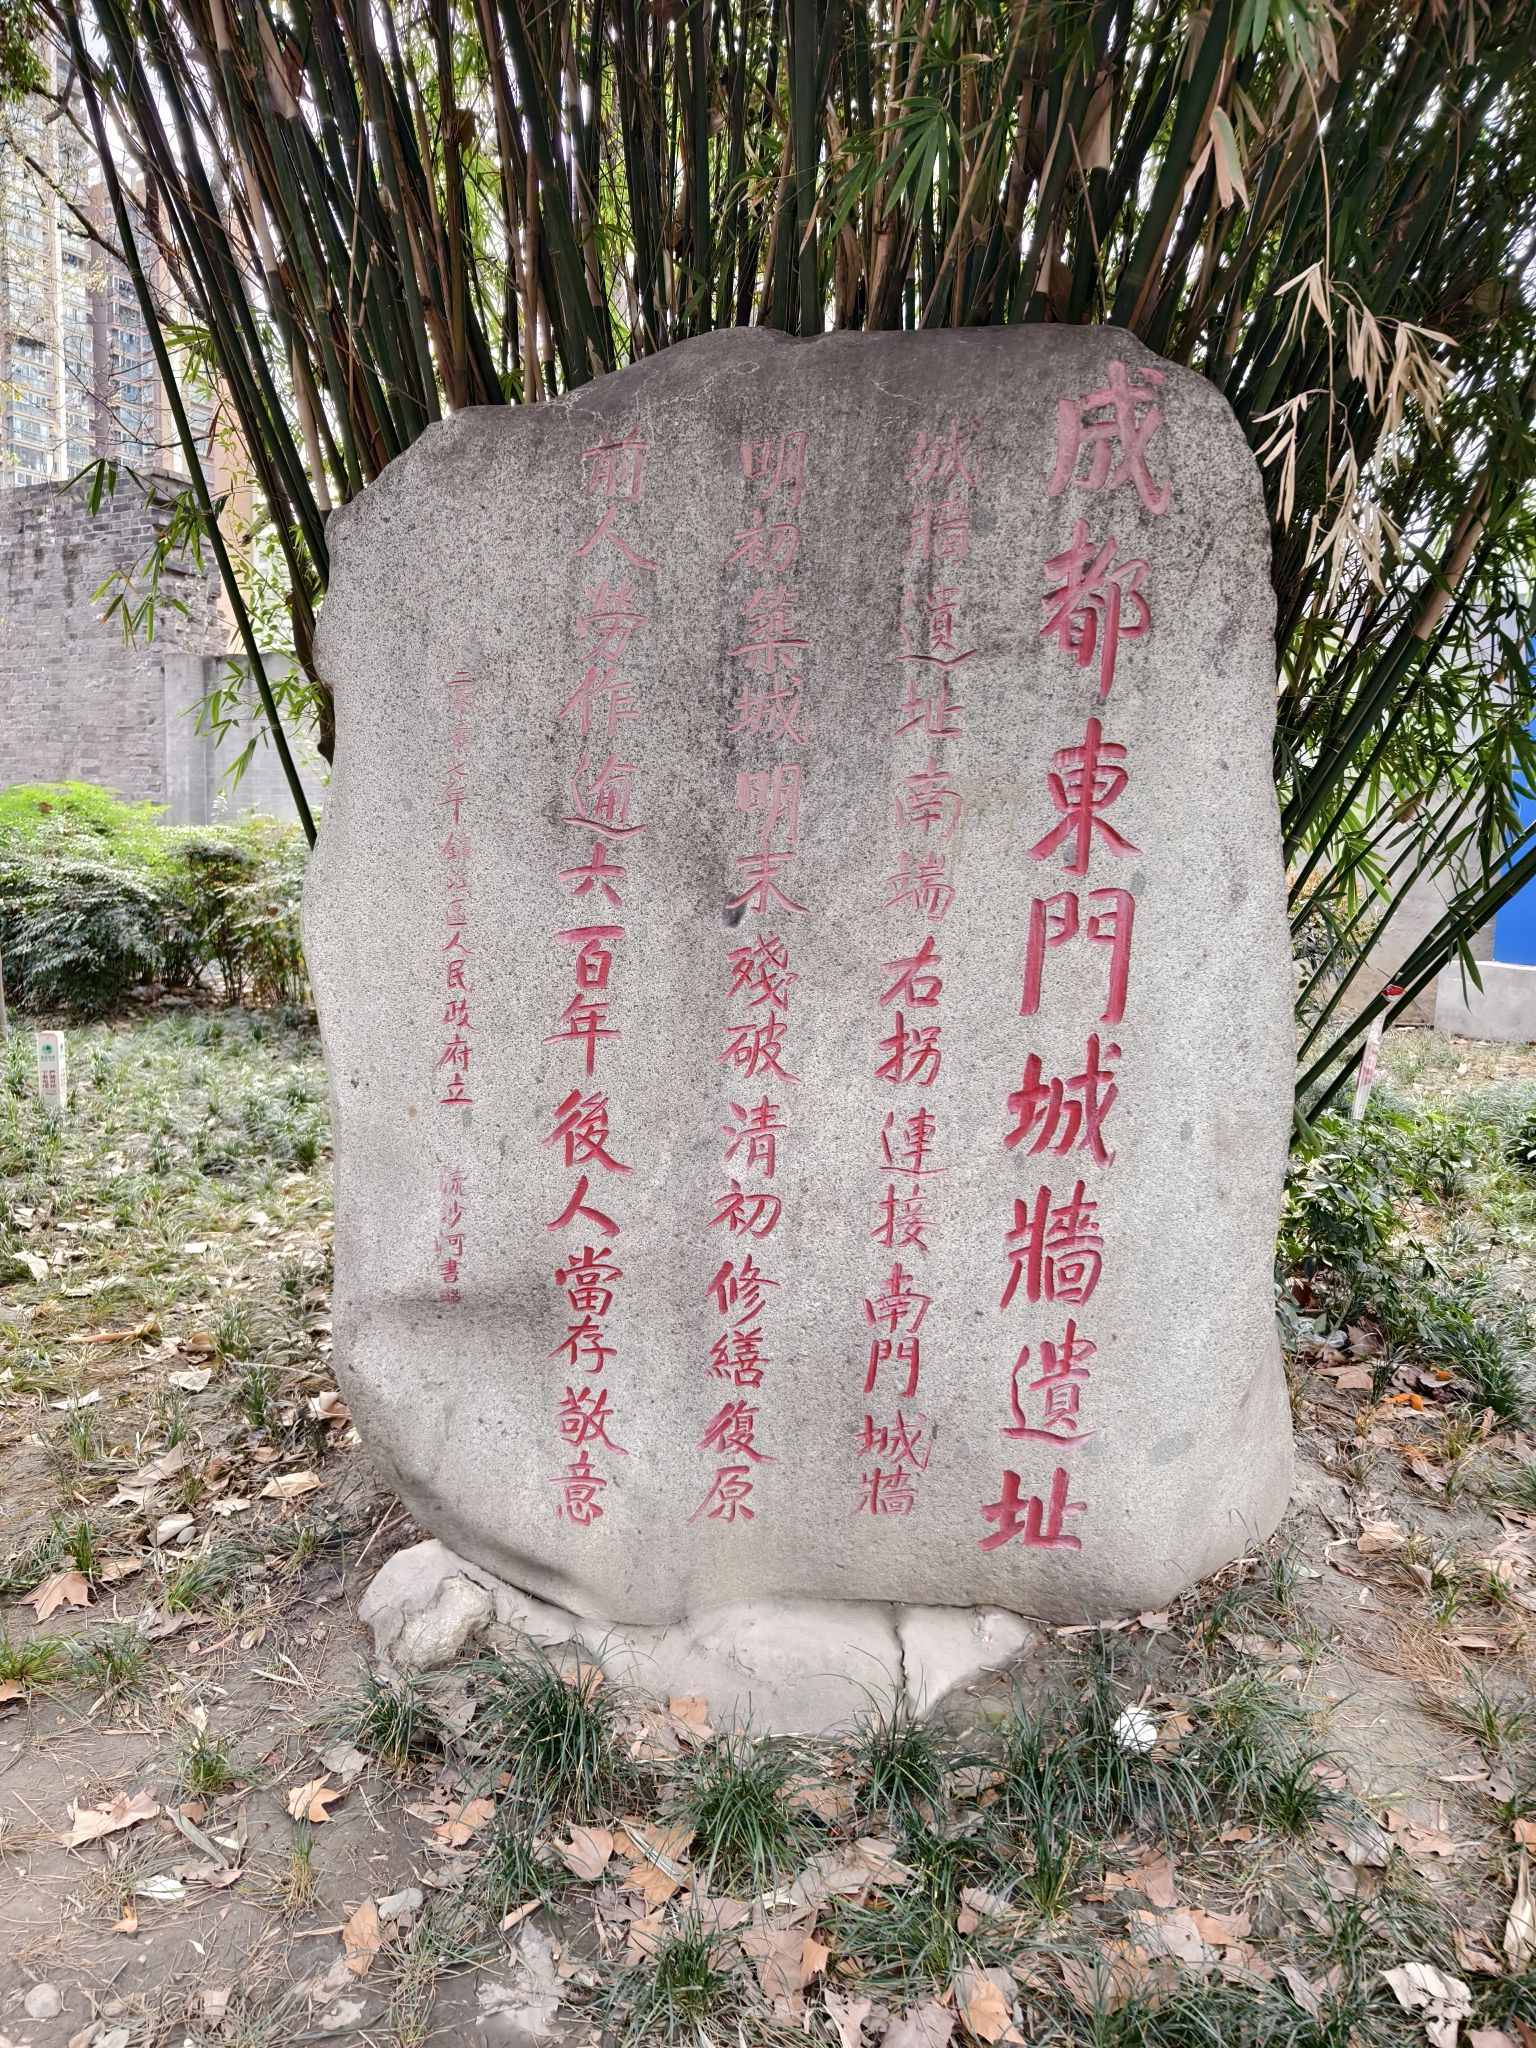 成都東門城牆遺址
城牆遺址南端右拐連接南門城牆
明初築城明末殘破清初修繕復原
前人勞作逾六百年後人當存敬意
二零零七年錦江區人民政府立 流沙河書